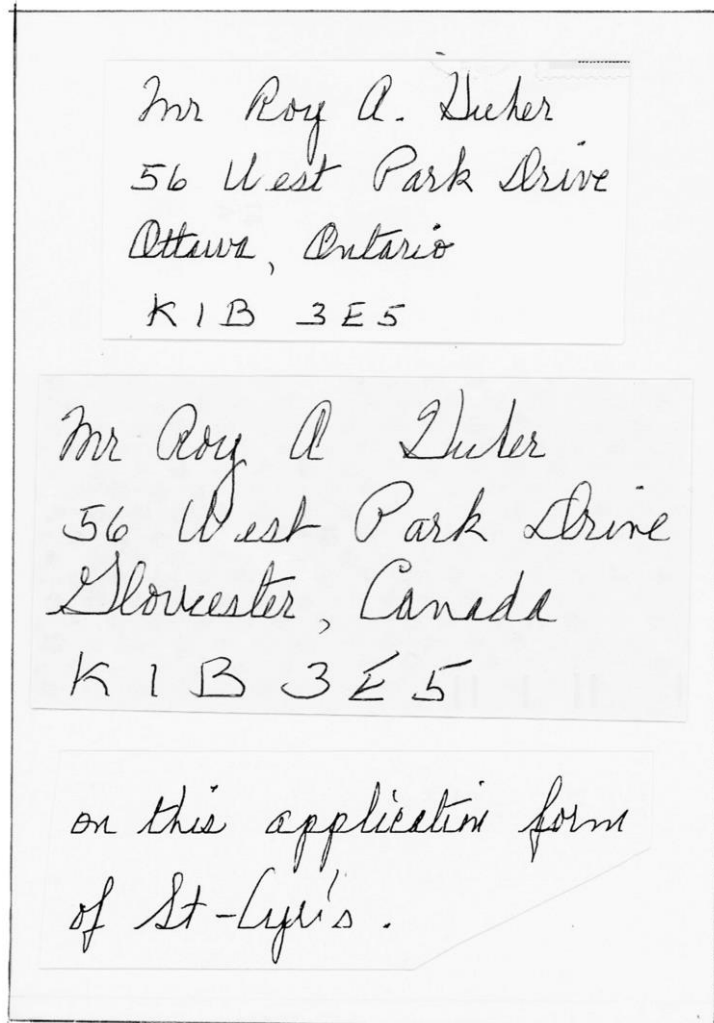 Mr Roy A.
56 West Park Drive
Ottawa, Ontario
K1B 3E5
Mr Roy A
56 West Park Drive
Gloucester, Canada
K1B 3E5
on this application form
of St-Cyr's.